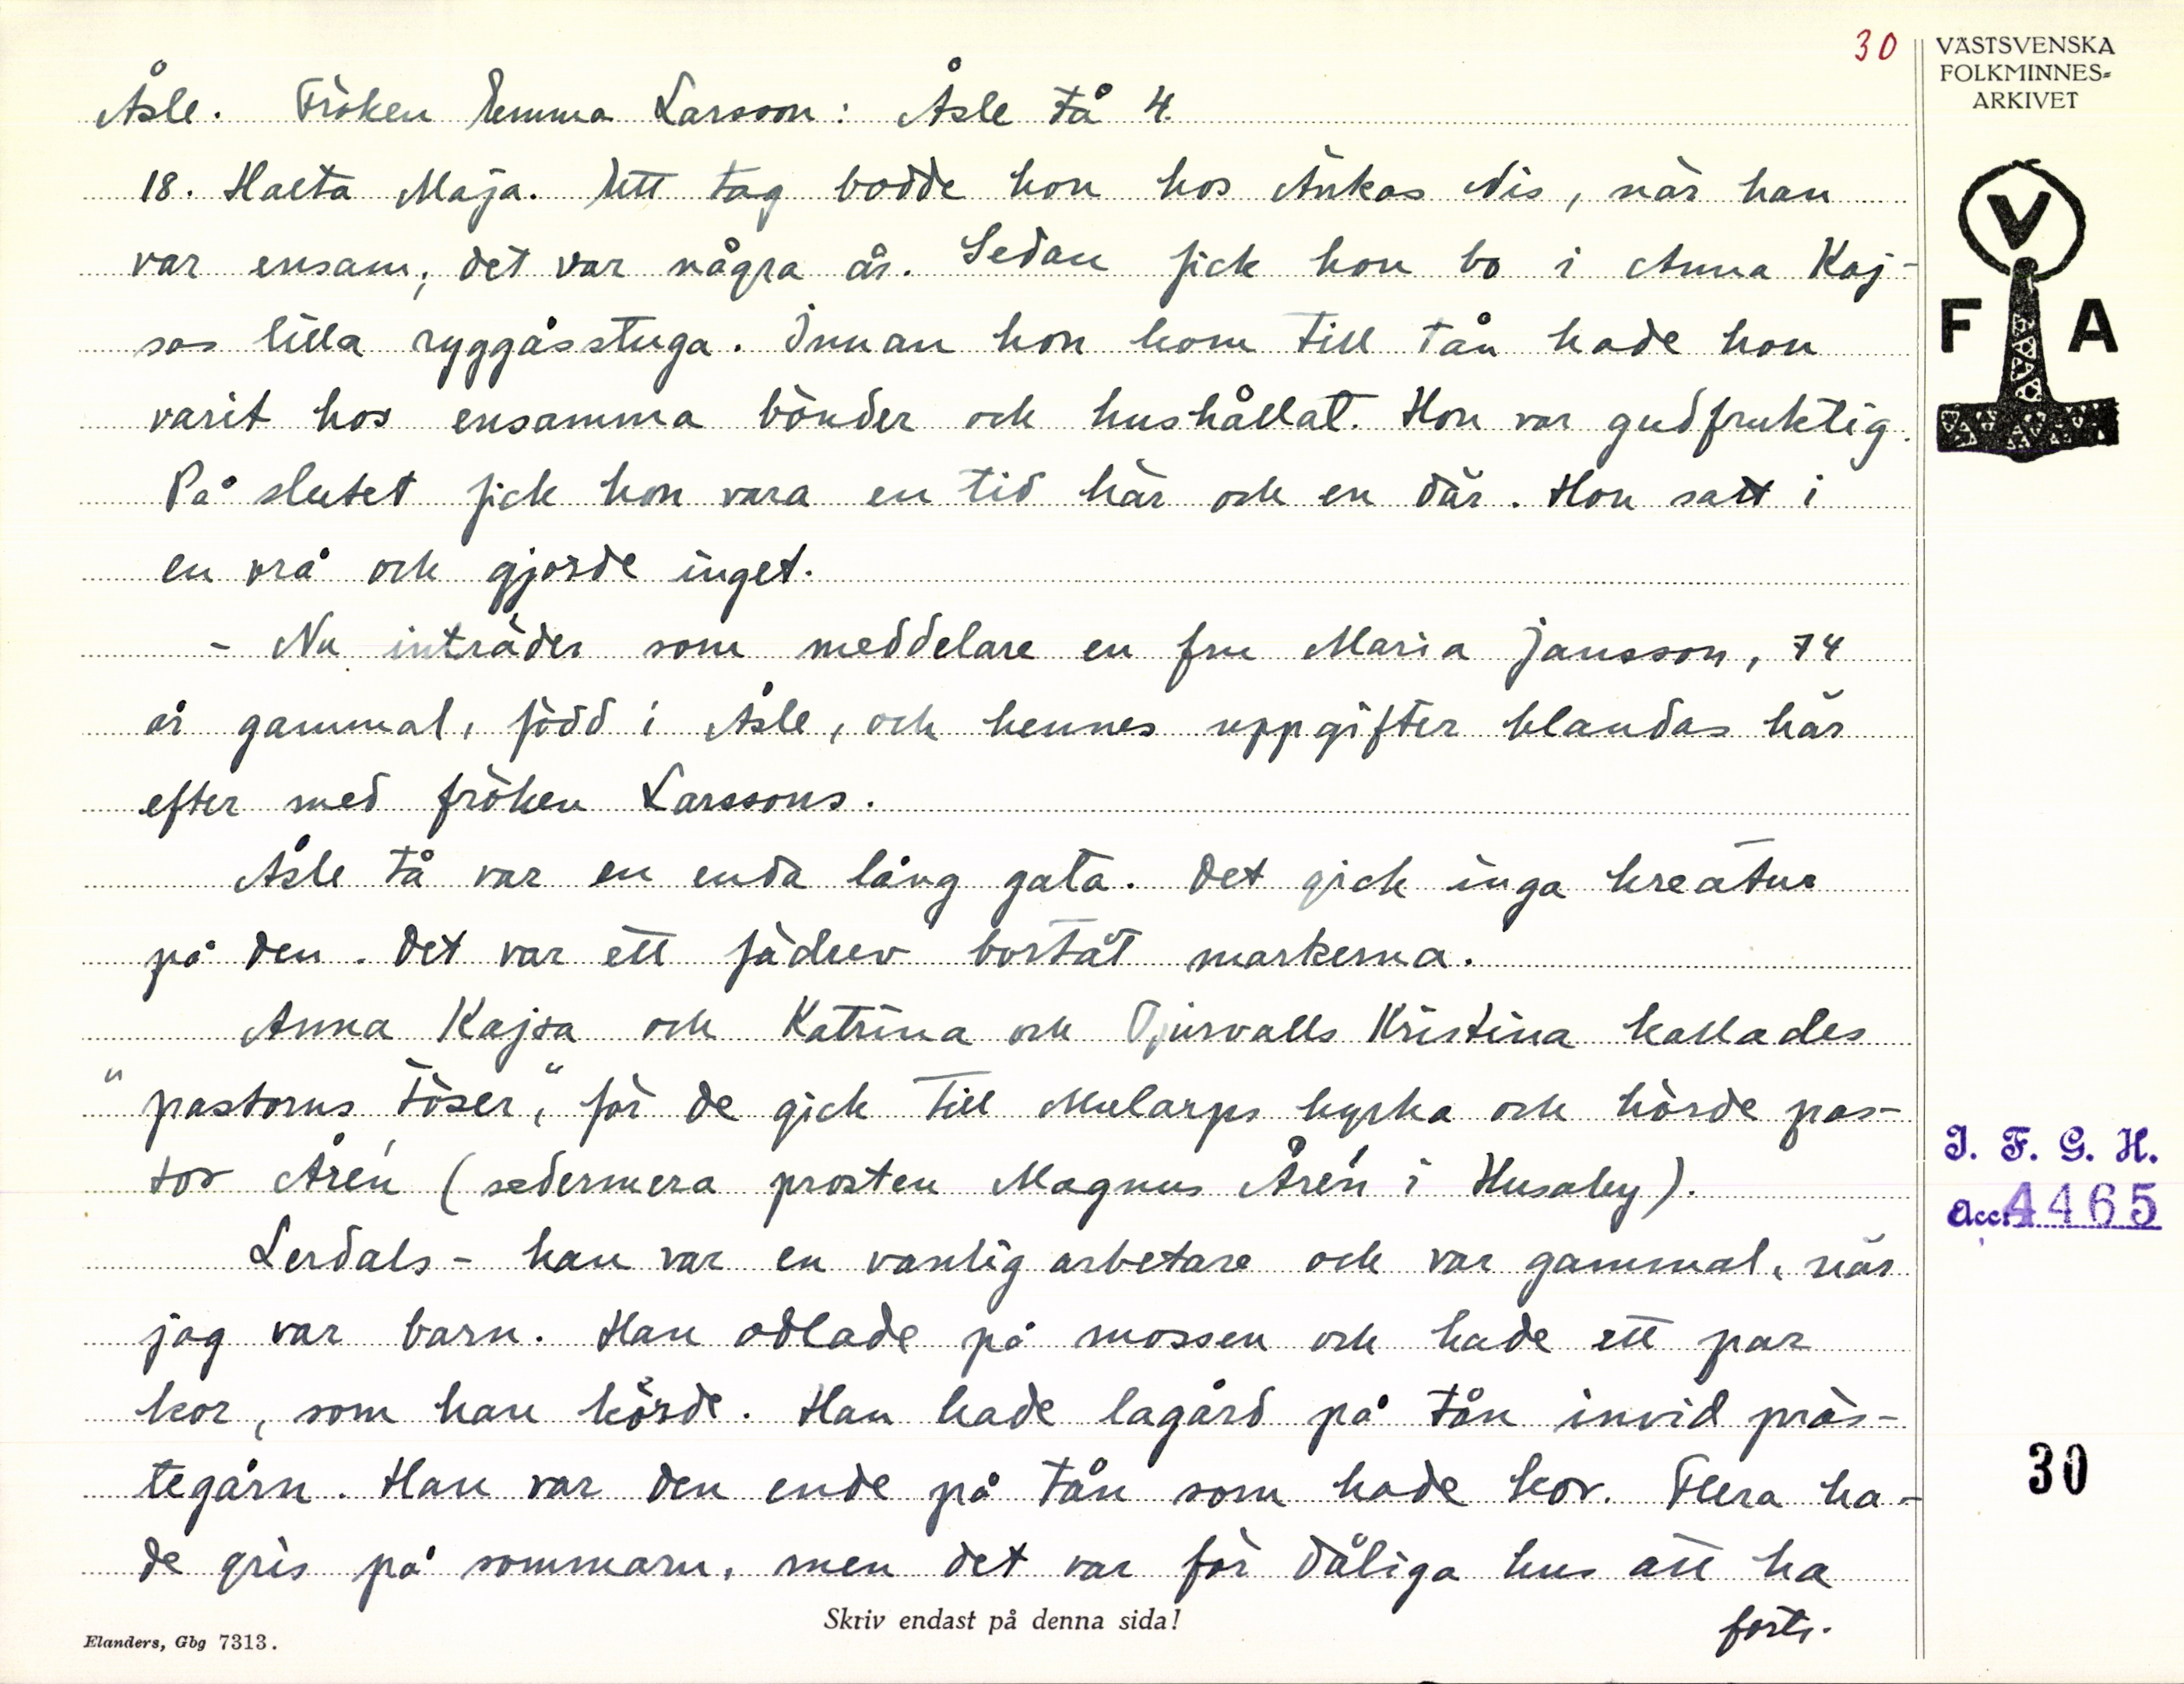 30
VÄSTSVENSKA
FOLKMINNES-
ARKIVET
Åsle. Fröken Emma Larsson: Åsle tå 4.
18. Halta Maja. Ett tag bodde hon hos Änkas Nis, när han
var ensam, det var några år. Sedan fick hon bo i Anna Kaj-
sas lilla ryggåsstuga. Innan hon kom till tån hade hon
varit hos ensamma bönder och hushållat. Hon var gudfruktig.
På slutet fick hon vara en tid här och en där. Hon satt i
en vrå och gjorde inget.
- Nu inträder som meddelare en fru Maria Jansson, 74
år gammal, född i Åsle, och hennes uppgifter blandas här
efter med fröken Larssons.
Åsle tå var en enda lång gata. Det gick inga kreatur
på den. Det var ett fädrev bortåt markerna.
Anna Kajsa och Katrina och Djurvalls Kristina kallades
"pastorns töser," för de gick till Mularps kyrka och hörde pas-
tor Årén (sedermera prosten Magnus Årén i Husaby).
Lerdals - han var en vanlig arbetare och var gammal, när
jag var barn. Han odlade på mossen och hade ett par
kor, som han körde. Han hade lagård på tån invid präs-
tegårn. Han var den ende på tån som hade kor. Flera ha-
de gris på sommarn, men det var för dåliga hus att ha
forts.
V
F A
I. F. G. H.
Acc. 4465
30
Skriv endast på denna sida!
Elanders, Gbg 7313.